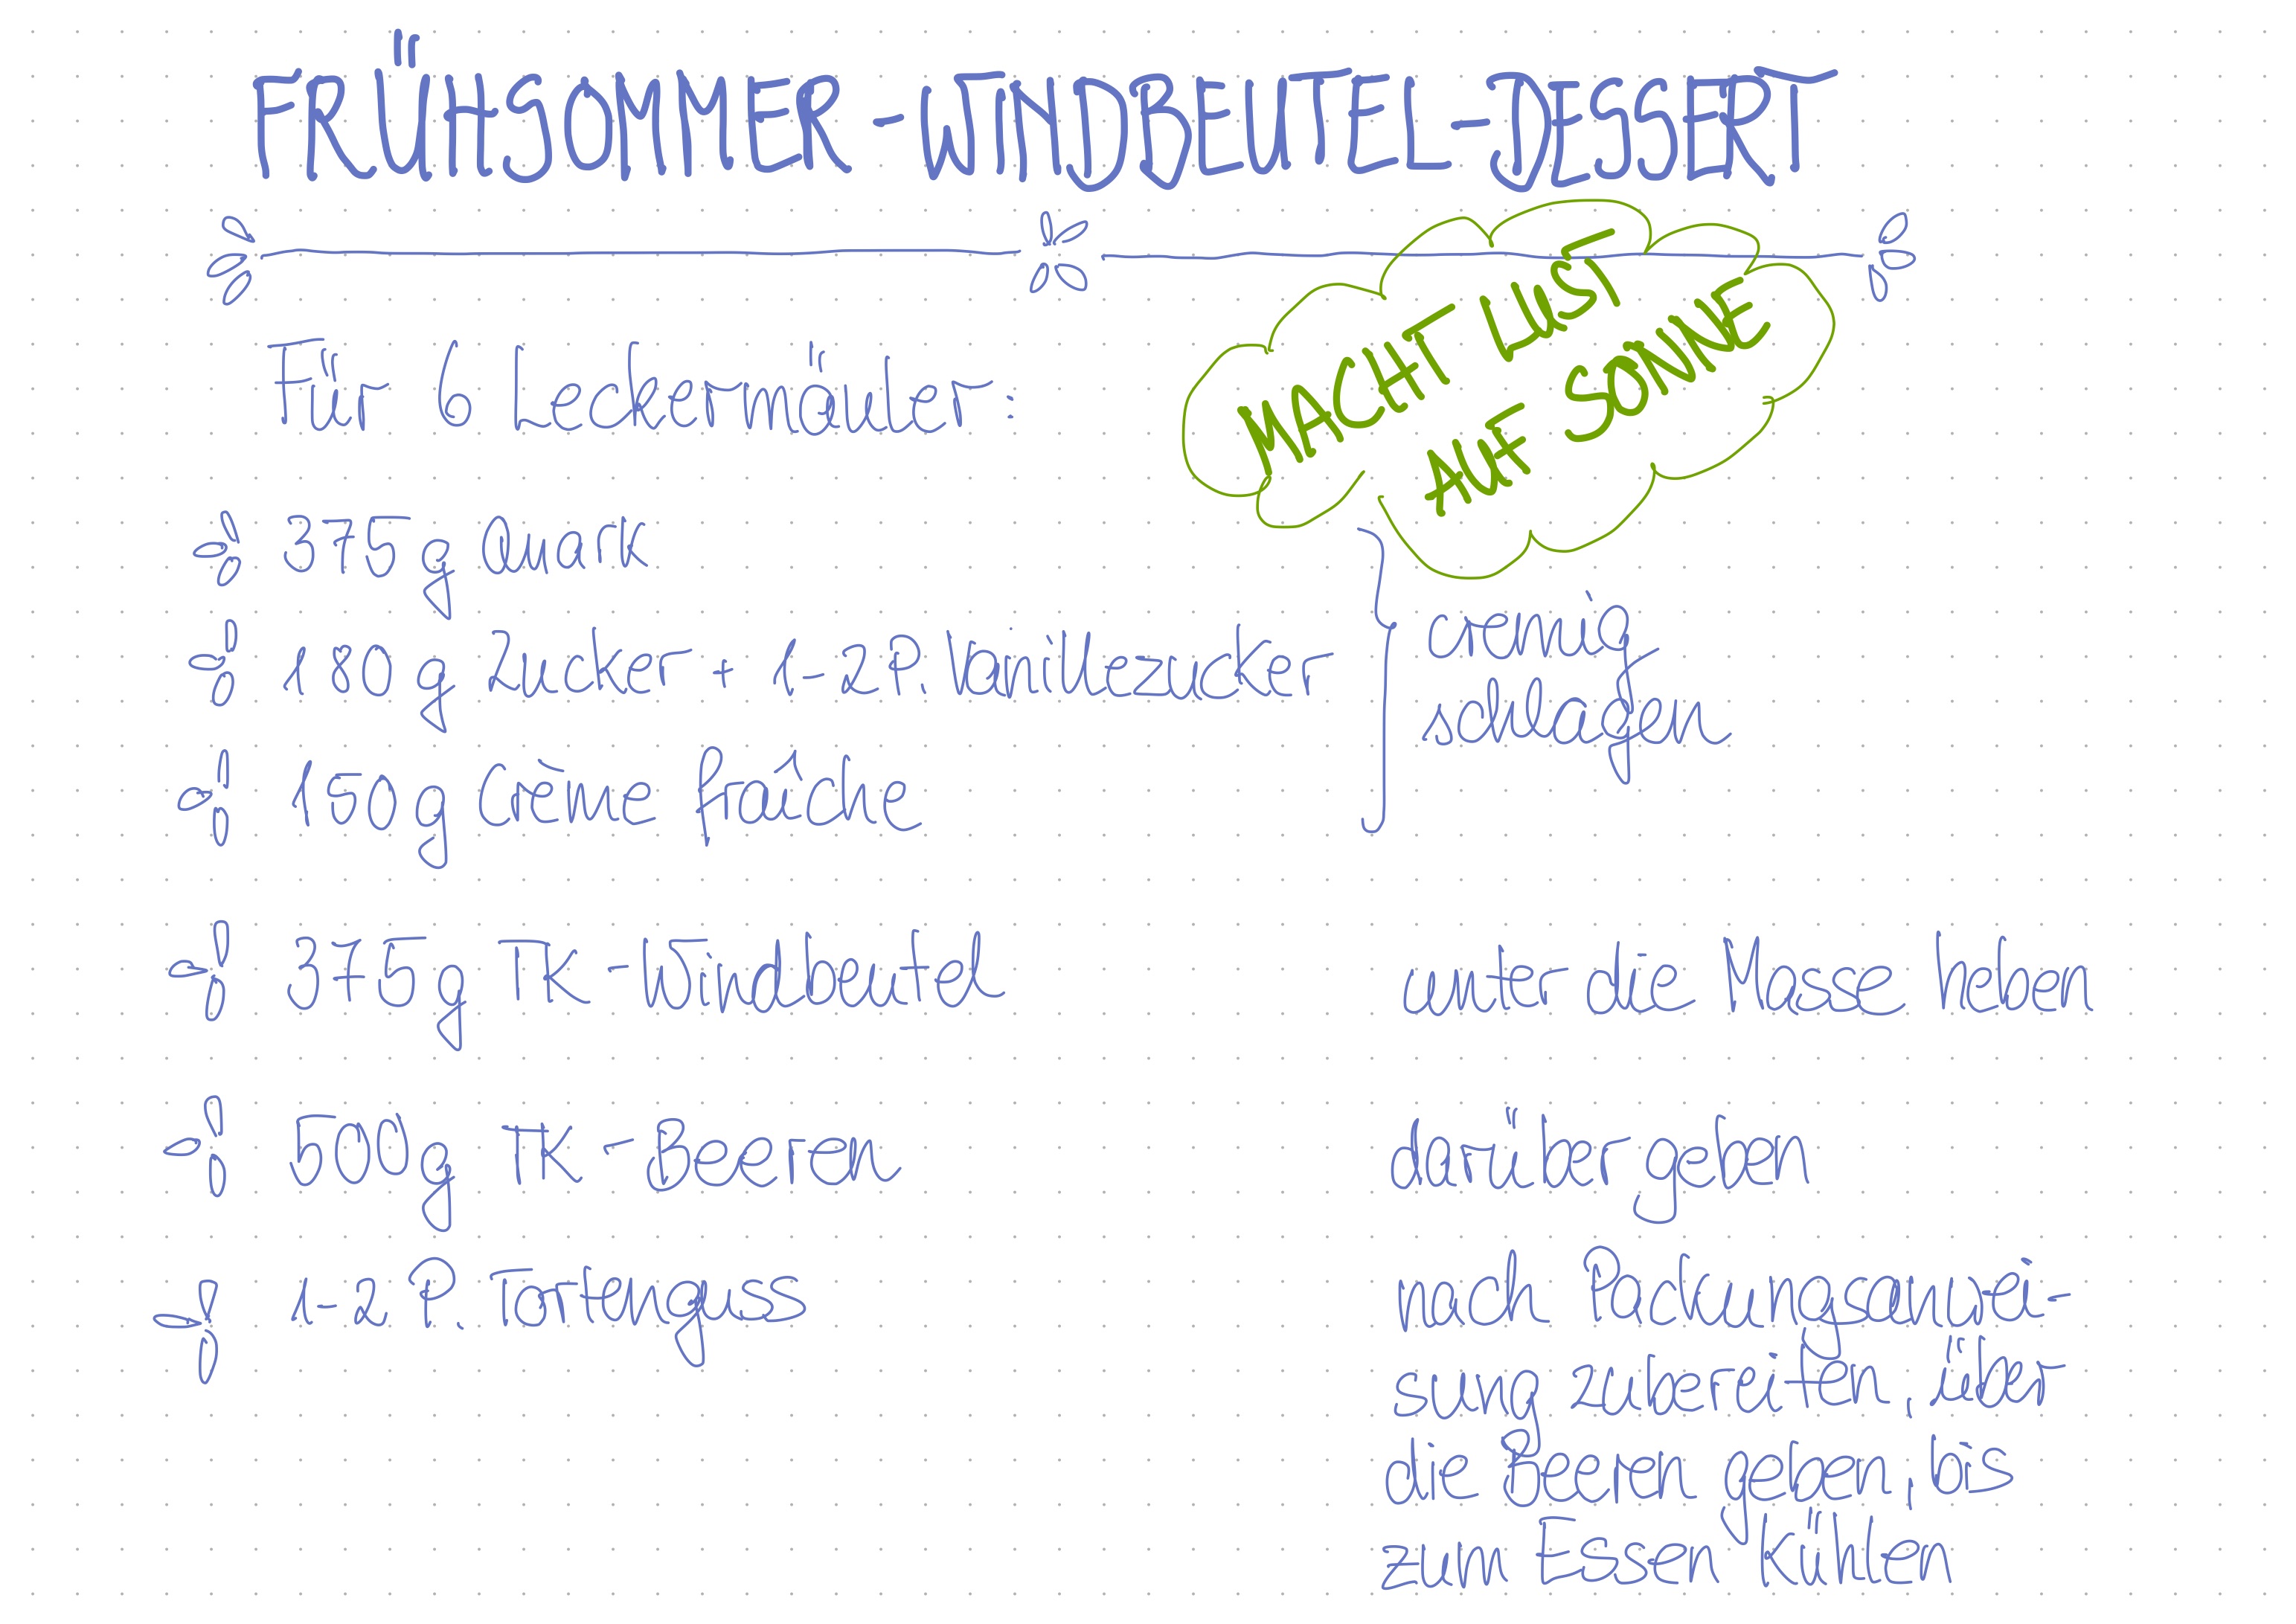 FRÜHSOMMER-WINDBEUTEL-DESSERT
MACHT LUST
AUF SONNE
Für 6 Leckermäuler:
375g Quark
180g Zucker + 1-2 P. Vanillezucker
150g Crème fraîche
cremig
schlagen
375g TK-Windbeutel
unter die Masse heben
500g TK-Beeren
darüber geben
1-2 P. Tortenguss
nach Packungsanwei-
sung zubereiten, über
die Beeren geben, bis
zum Essen kühlen